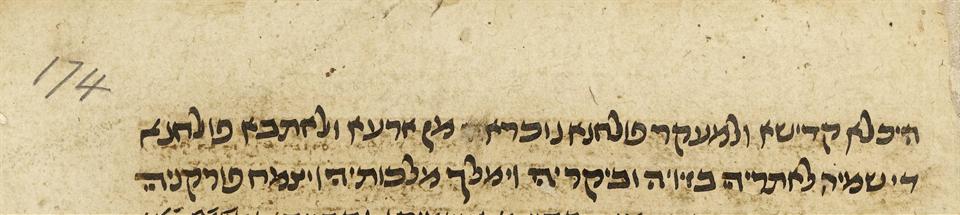 174
היכלא קדישא ולמעקר פולחנא נוכראה מן ארעא ולאתבא פולחנא
די שמיה לאתריה בזיויה וביקריה וימלך מלכותיה ויצמח פורקניה